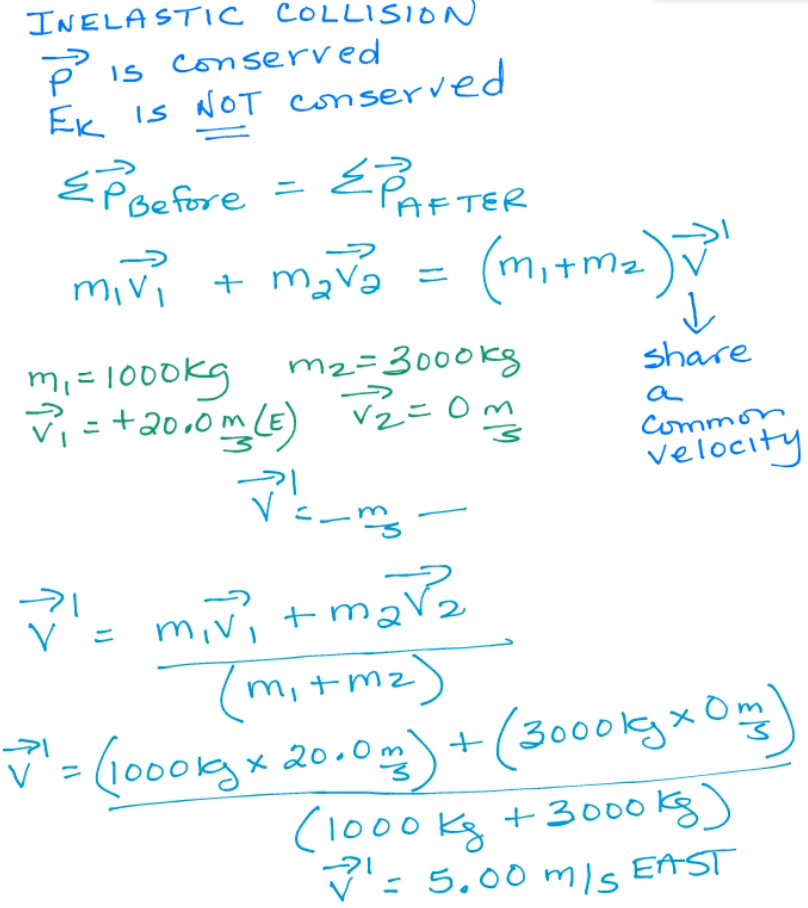 INELASTIC COLLISION
p⃗ is conserved
EK is NOT conserved
Σp⃗Before = Σp⃗AFTER
m₁v⃗₁ + m₂v⃗₂ = (m₁+m₂)v⃗'
↓
share
a
common
velocity
m₁=1000kg m₂=3000kg
v⃗₁ = +20.0 m/s (E) v⃗₂ = 0 m/s
v⃗' = _ m/s _
v⃗' = m₁v⃗₁ + m₂v⃗₂
(m₁+m₂)
v⃗' = (1000kg × 20.0 m/s) + (3000kg × 0 m/s)
(1000 kg + 3000 kg)
v⃗' = 5.00 m/s EAST